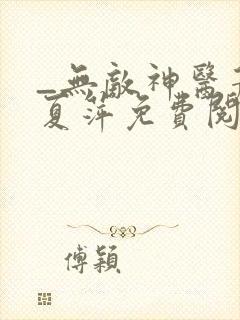 _無敵神醫
夏萍免費閱
傅穎